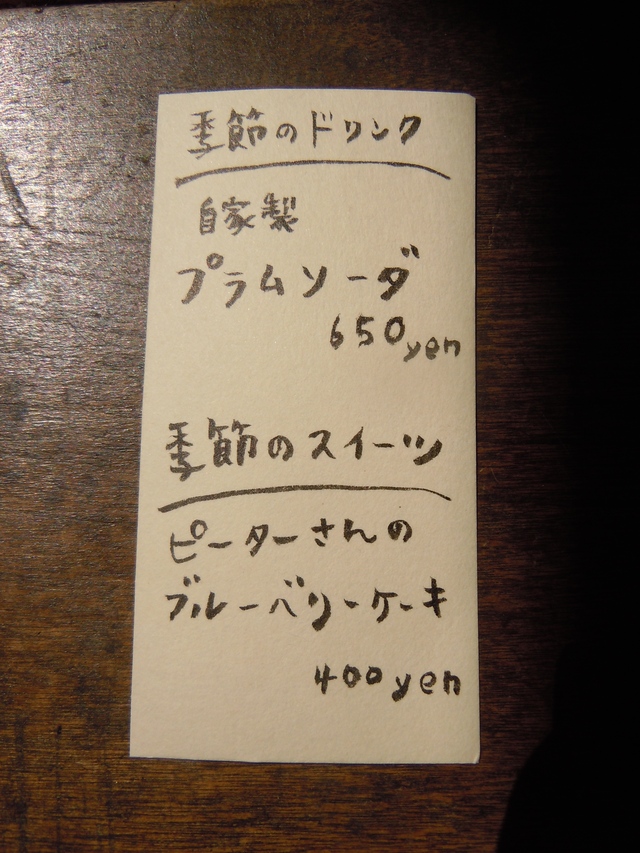 季節のドリンク
自家製
プラムソーダ
650yen
季節のスイーツ
ピーターさんの
ブルーベリーケーキ
400yen